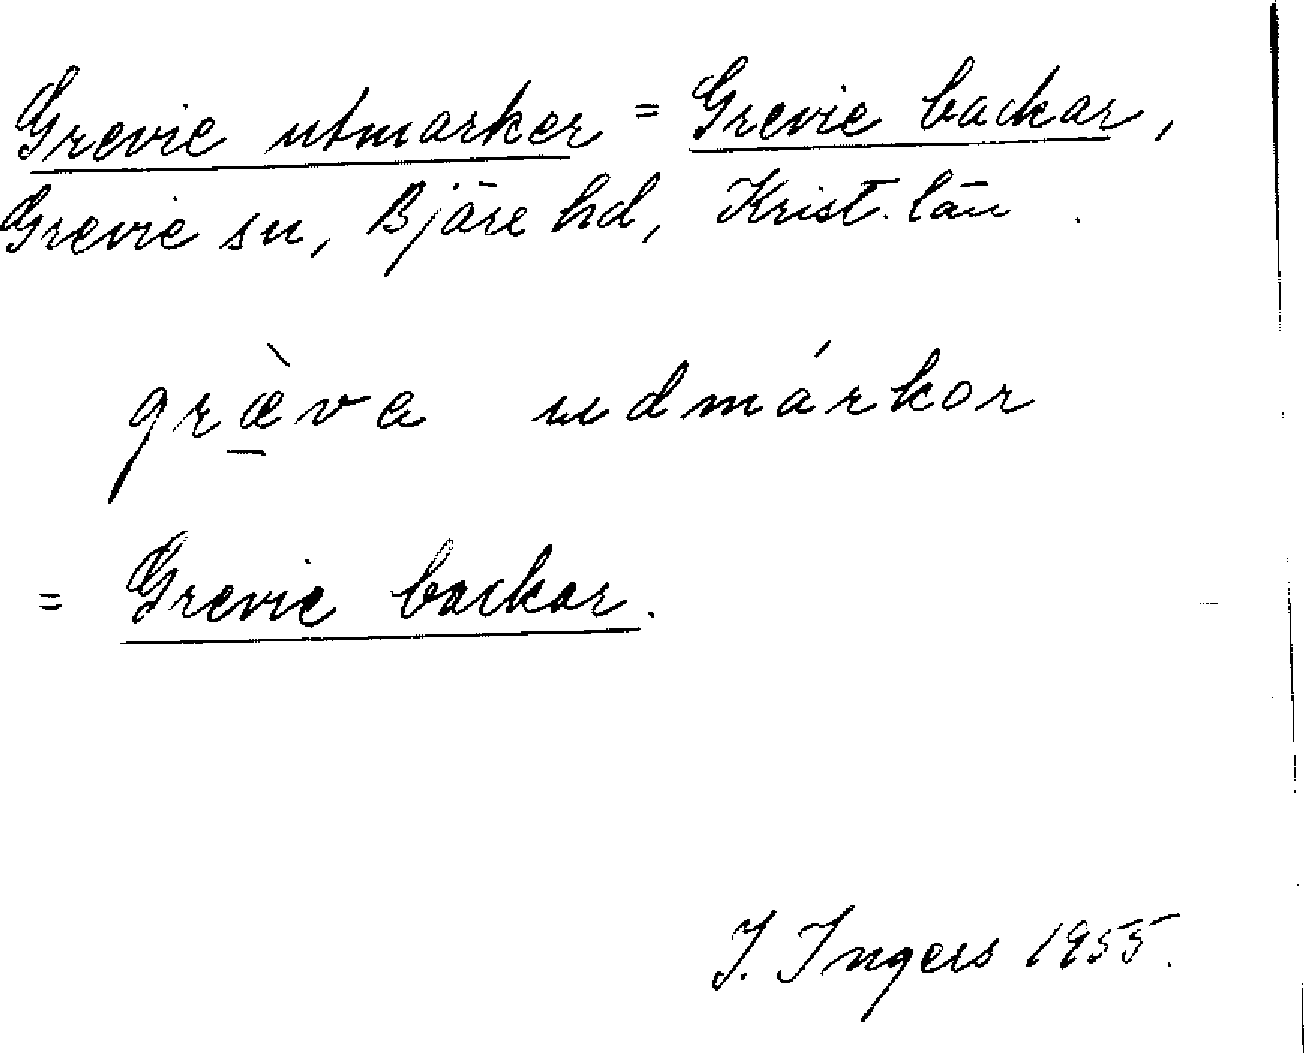 Grevie utmarker = Grevie backar,
Grevie sn, Bjäre hd, Krist. län.
græ̱̀va udmárkor
= Grevie backar.
I. Ingers 1955.